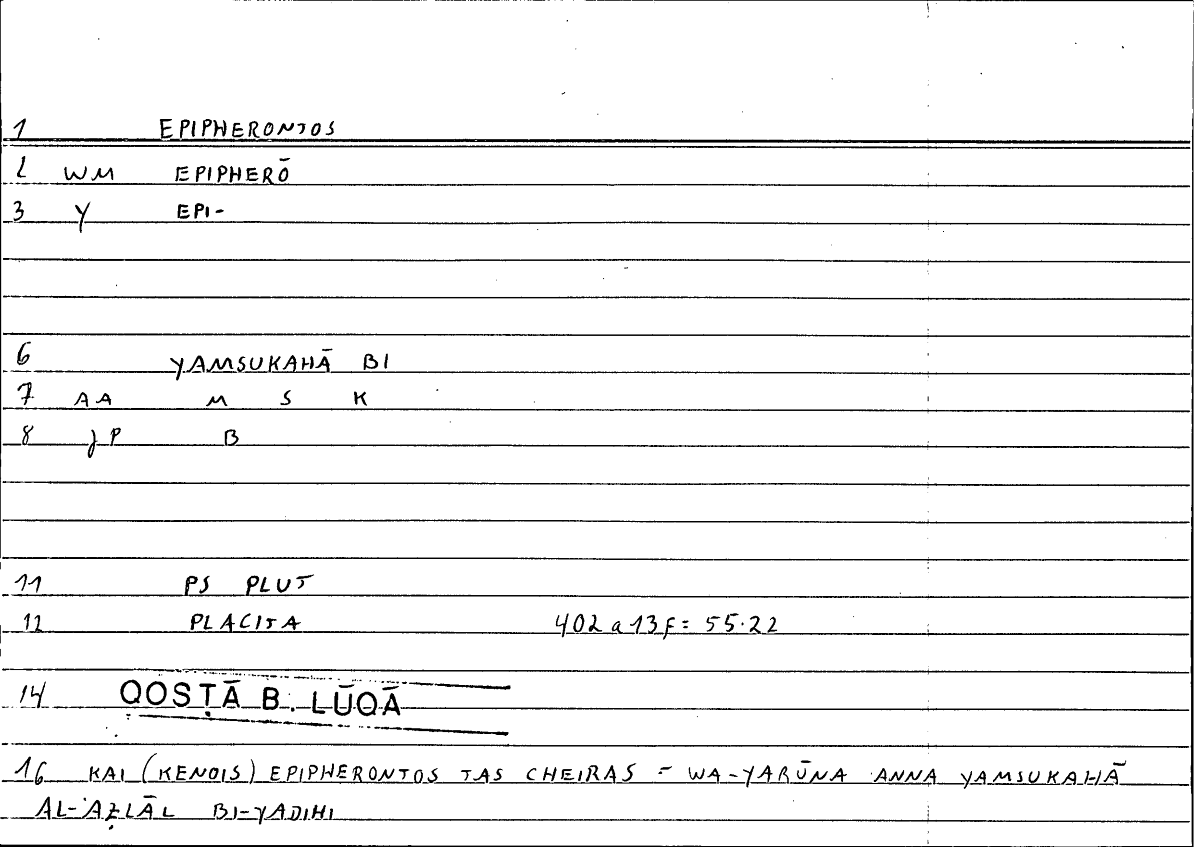 1 EPIPHERONTOS
2 WM EPIPHERŌ
3 Y EPI-
6 YAMSUKAHĀ BI
7 AA M S K
8 JP B
11 PS PLUT
12 PLACITA 402 a 13 f = 55.22
14 QOSṬĀ B. LŪQĀ
16 KAI (KENOIS) EPIPHERONTOS TAS CHEIRAS = WA-YARŪNA ANNA YAMSUKAHĀ
AL-AẒLĀL BI-YADIHI